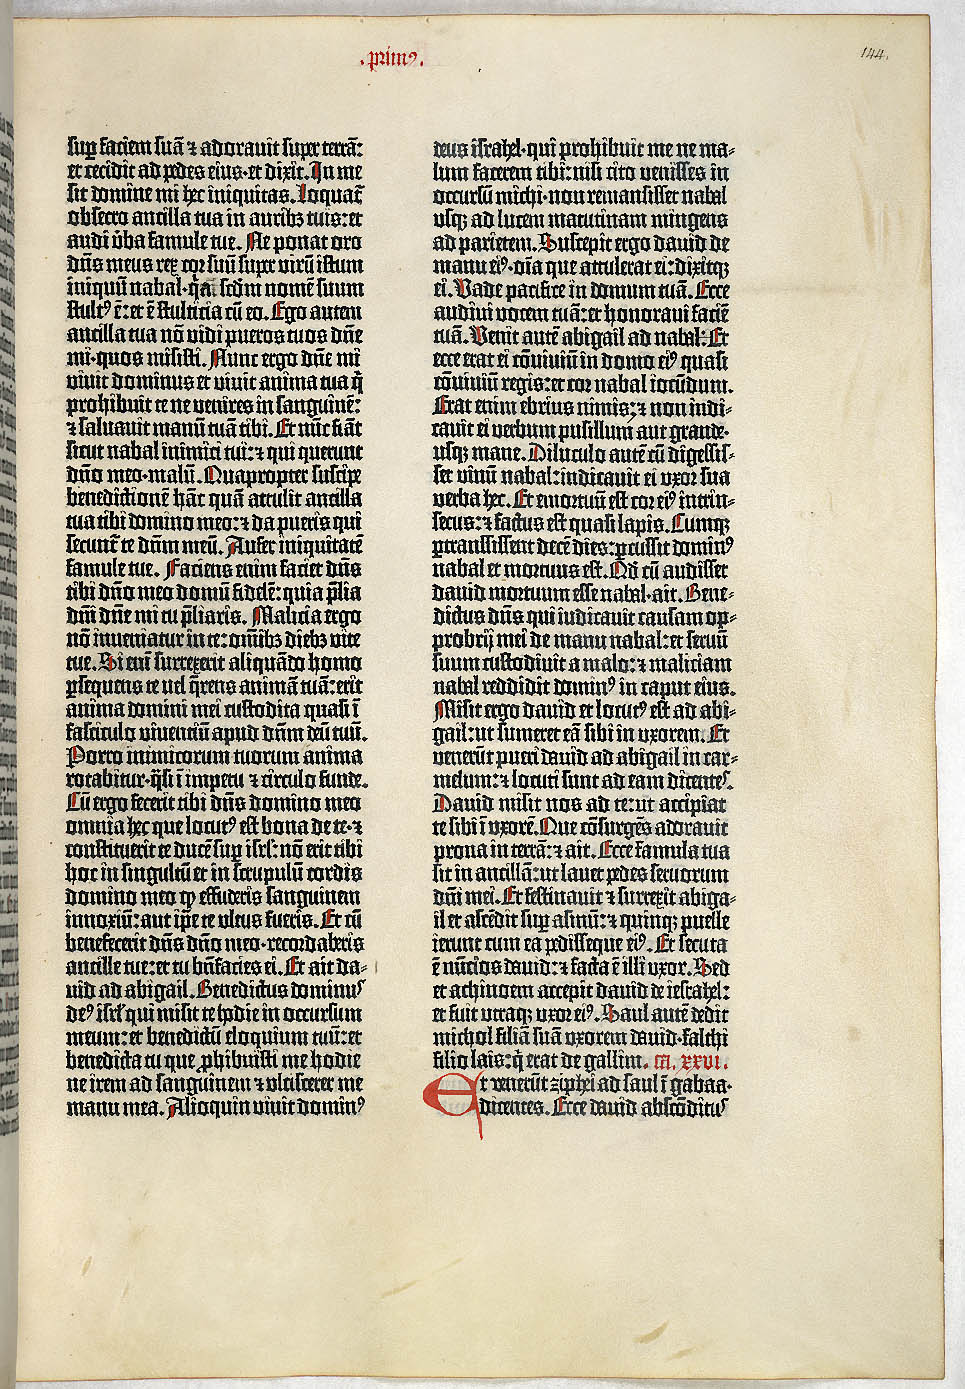 .primꝰ.
144.
suꝑ faciem suā ⁊ adorauit super terrā:
et cecidit ad pedes eius· et dixit. In me
sit domine mi hec iniquitas. Loquat᷑
obsecro ancilla tua in auribꝫ tuis: et
audi v̄ba famule tue. Ne ponat oro
dn̄s meus rex cor suū super virū istum
iniquū nabal· qm̄ scd̄m nomē suum
stultꝰ ē: et ē stulticia cū eo. Ego autem
ancilla tua nō vidi pueros tuos dn̄e
mi· quos misisti. Nunc ergo dn̄e mi
viuit dominus et viuit anima tua q̄
prohibuit te ne venires in sanguinē:
⁊ saluauit manū tuā tibi. Et nūc fiāt
sicut nabal inimici tui: ⁊ qui querunt
dn̄o meo· malū. Quapropter suscipe
benedictionē hāc quā attulit ancilla
tua tibi domino meo: ⁊ da pueris qui
secunt᷑ te dn̄m meū. Aufer iniquitatē
famule tue. Faciens enim faciet dn̄s
tibi dn̄o meo domū fidelē: quia p̄lia
dn̄i dn̄e mi tu p̄liaris. Malicia ergo
nō inueniatur in te: om̄ibꝫ diebꝫ vite
tue. Si eni surrexerit aliquādo homo
ꝑsequens te uel q̄rens animā tuā: erit
anima domini mei custodita quasi ī
fasciculo viuentiū apud dn̄m deū tuū.
Porro inimicorum tuorum anima
rotabitur· q̄si ī impetu ⁊ circulo funde.
Cū ergo fecerit tibi dn̄s domino meo
omnia hec que locutꝰ est bona de te· ⁊
constituerit te ducē suꝑ isrl̄: nō erit tibi
hoc in singultū et in scrupulū cordis
domino meo ꝙ effuderis sanguinem
innoxiū: aut ip̄e te ultus fueris. Et cū
benefecerit dn̄s dn̄o meo· recordaberis
ancille tue: et tu bn̄facies ei. Et ait da-
uid ad abigail. Benedictus dominus
deꝰ isrl̄ qui misit te hodie in occursum
meum: et benedictū eloquium tuū: et
benedicta tu que ꝓhibuisti me hodie
ne irem ad sanguinem ⁊ ulciscerer me
manu mea. Alioquin viuit dominꝰ
deus israhel· qui prohibuit me ne ma-
lum facerem tibi: nisi cito venisses in
occursū michi· non remansisset nabal
usqꝫ ad lucem matutinam mingens
ad parietem. Suscepit ergo dauid de
manu eiꝰ· oīa que attulerat ei: dixitqꝫ
ei. Vade pacifice in domum tuā. Ecce
audiui vocem tuā: et honoraui faciē
tuā. Venit autē abigail ad nabal: Et
ecce erat ei cōuiuiū in domo eiꝰ quasi
cōuiuiū regis: et cor nabal iocūdum.
Erat enim ebrius nimis: ⁊ non indi-
cauit ei verbum pusillum aut grande·
usqꝫ mane. Diluculo autē cū digessis-
set vinū nabal: indicauit ei uxor sua
verba hec. Et emortuū est cor eiꝰ intrin-
secus: ⁊ factus est quasi lapis. Cumqꝫ
ꝑtransissent decē dies: ꝑcussit dominꝰ
nabal et mortuus est. Qd̄ cū audisset
dauid mortuum esse nabal· ait. Bene-
dictus dn̄s qui iudicauit causam op-
probrij mei de manu nabal: et seruū
suum custodiuit a malo: ⁊ maliciam
nabal reddidit dominꝰ in caput eius.
Misit ergo dauid et locutꝰ est ad abi-
gail: ut sumeret eā sibi in uxorem. Et
venerūt pueri dauid ad abigail in car-
melum: ⁊ locuti sunt ad eam dicentes.
Dauid misit nos ad te: ut accipiat
te sibi ī uxorē. Que cōsurgēs adorauit
prona in terrā: ⁊ ait. Ecce famula tua
sit in ancillā: ut lauet pedes seruorum
dn̄i mei. Et festinauit ⁊ surrexit abiga-
il et ascēdit suꝑ asinū: ⁊ quinqꝫ puelle
ierunt cum ea ꝑdisseque eiꝰ. Et secuta
ē nūcios dauid: ⁊ facta ē illi uxor. Sed
et achinoem accepit dauid de iesrahel:
et fuit utraqꝫ uxor eiꝰ. Saul autē dedit
michol filiā suā uxorem dauid· falthi
filio lais: q̄ erat de gallim. ca. xxvi.
Et venerūt ziphei ad saul ī gabaa·
dicentes. Ecce dauid abscōditus